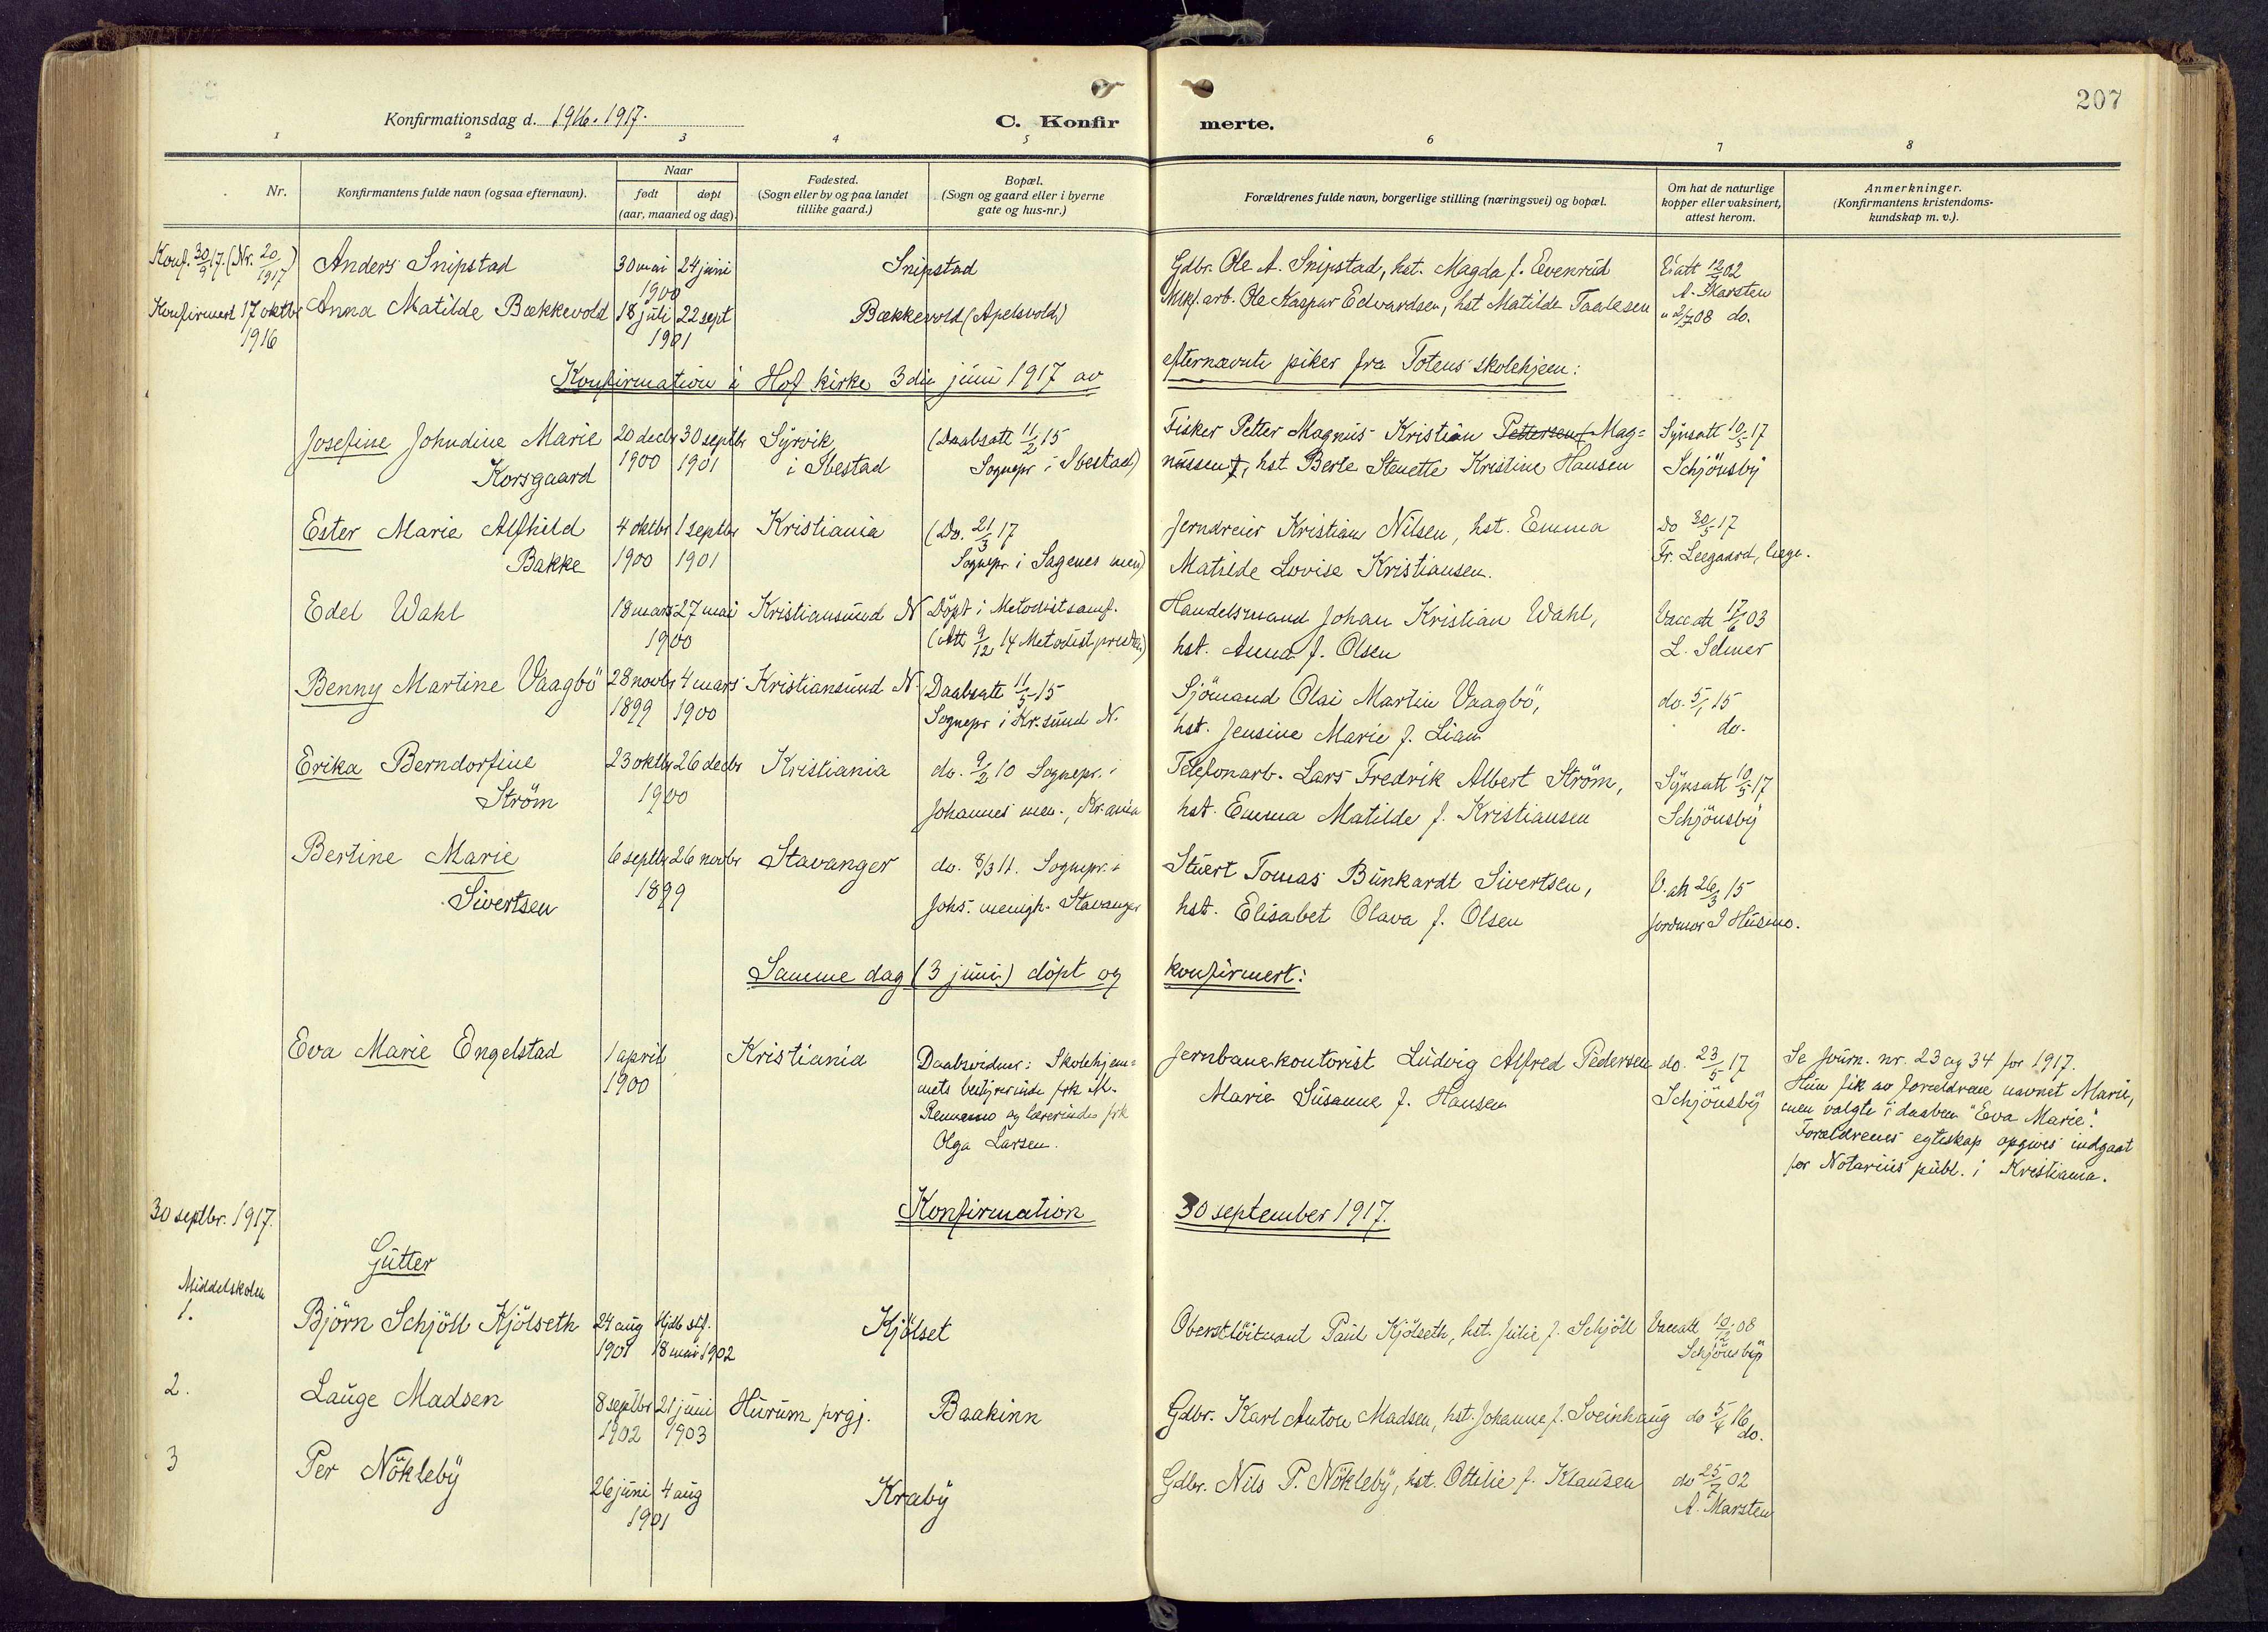 207
Konfirmationsdag d. 1916. 1917.
C. Konfirmerte.
1 2 3 4 5 6 7 8
Nr.
Konfirmantens fulde navn (ogsaa efternavn).
Naar
født døpt
(aar, maaned og dag).
Fødested.
(Sogn eller by og paa landet
tillike gaard.)
Bopæl.
(Sogn og gaard eller i byerne
gate og hus-nr.)
Forældrenes fulde navn, borgerlige stilling (næringsvei) og bopæl.
Om hat de naturlige
kopper eller vaksinert,
attest herom.
Anmerkninger.
(Konfirmantens kristendoms-
kundskap m. v.).
Konf. 30/9 17. (Nr. 20/1917) Anders Snipstad 30 mai 24 juni Snipstad Gdbr. Ole A. Snipstad, hst. Magda f. Evenrud 12/9 02
1900 A. Marsten
Konfirmert 17 oktbr Anna Matilde Bækkevold 18 juli 22 sept Bækkevold (Apelsvold) arb. Ole Kaspar Edvardsen, hst Matilde Taalesen " 2/7 08 do.
1916 1901
Konfirmation i Hof kirke 3die juni 1917 av efternævnte piker fra Totens skolehjem:
Josefine Johndine Marie 20 decbr 30 septbr Syrvik (Daabsatt 11/2 15 Fisker Petter Magnus Kristian Pettersen (Mag= Synsatt 10/5 17
Korsgaard 1900 1901 i Ibestad Sognepr. i Ibestad) nussen), hst. Berte Stenette Kristine Hansen Schjönsby
Ester Marie Alfhild 4 oktbr 1 septbr Kristiania (Do. 21/3 17 Jerndreier Kristian Nilsen, hst. Emma do 30/5 17
Bakke 1900 1901 Sognepr. i Sagenes men) Matilde Lovise Kristiansen. Fr. Leegaard, læge.
Edel Wahl 18 mars 27 mai Kristiansund N Döpt i Metodistsamf. Handelsmand Johan Kristian Wahl, Vaccatt 17/6 03
1900 (Att 9/12 14 Metodistpresten) hst. Anna f. Olsen L. Selmer
Benny Martine Vaagbö 28 novbr 4 mars Kristiansund N Daabsatt 11/5 15 Sjömand Olai Martin Vaagbö, do. 5/1 15
1899 1900 Sognepr. i Kr.sund N. hst. Jensine Marie f. Lian do.
Erika Berndorfine 23 oktbr 26 decbr Kristiania do. 9/2 10 Sognepr. i Telefonarb. Lars Fredrik Albert Ström, Synsatt 10/5 17
Ström 1900 Johannes men., Kr.ania hst. Emma Matilde f. Kristiansen Schjönsby
Bertine Marie 6 septbr 26 novbr Stavanger do. 8/3 11. Sognepr. i Stuert Tomas Bunkardt Sivertsen, V. att 26/3 15
Sivertsen 1899 Johs. menigh. Stavanger hst. Elisabet Olava f. Olsen Jordmor
Samme dag (3 juni) döpt og konfirmert:
Eva Marie Engelstad 1 april Kristiania Daabsvidner: Skolehjem= Jernbanekontorist Ludvig Alfred Pedersen do. 23/5 17 Se Journ. nr. 23 og 34 for 1917.
1900 mets bestyrerinde frk M. Marie Susanne f. Hansen Schjönsby Hun fik av forældrene navnet Marie,
og lærerinde frk men valgte i daaben "Eva Marie".
Olga Larsen. Forældrenes egteskap opgives indgaat
for Notarius publ. i Kristiania.
30 septbr. 1917. Konfirmation 30 september 1917.
Gutter
Middelskolen
1. Björn Schjöll Kjölseth 24 aug Hjdb stf. Kjölset Oberstlöitnant Paul Kjölseth, hst. Julie f. Schjöll Vaccatt 10/12 08
1901 18 mai 1902 Schjönsby
2. Lauge Madsen 8 septbr 21 juni Hurum prgj. Baakinn Gdbr. Karl Anton Madsen, hst. Johanne f. Sveinhaug do 5/6 16
1902 1903 do.
3 Per Nökleby 26 juni 4 aug Kraby Gdbr. Nils P. Nökleby, hst. Ottilie f. Klausen do 25/7 02
1901 A. Marsten